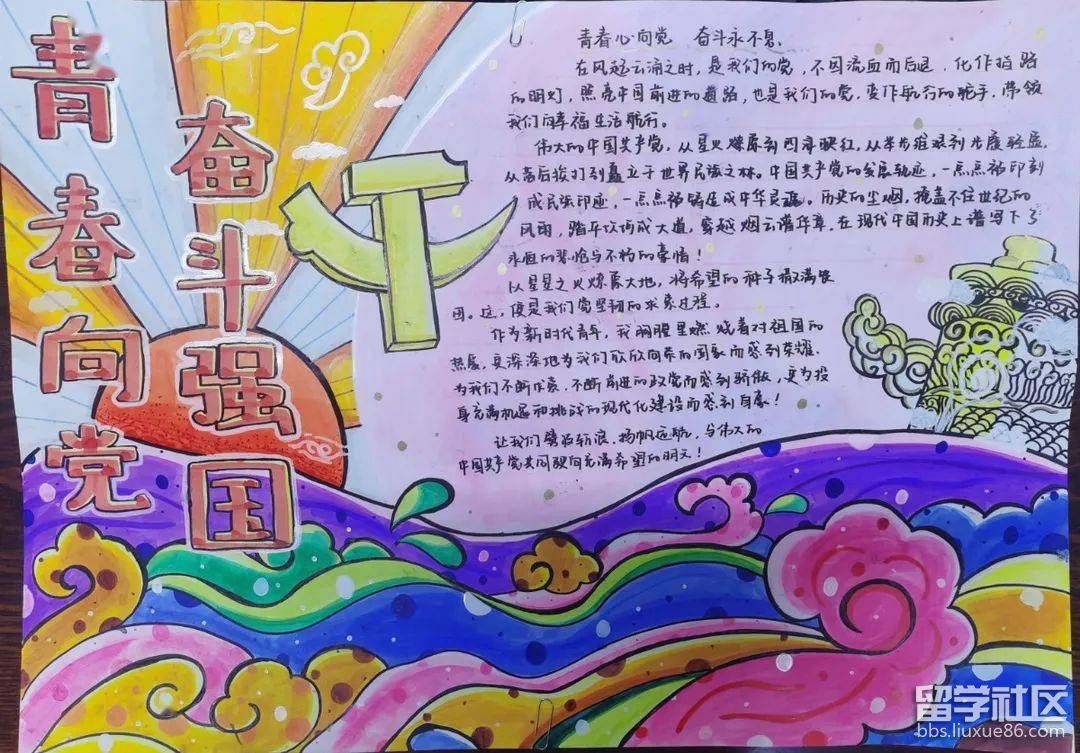 青春向党
奋斗强国
青春心向党 奋斗永不息
在风起云涌之时，是我们的党，不因流血而后退，化作指路
的明灯，照亮中国前进的道路，也是我们的党，变作航行的舵手，带领
我们向幸福生活航行。
伟大的中国共产党，从星火燎原到四海映红，从举步维艰到步履轻盈，
从落后挨打到矗立于世界民族之林。中国共产党的发展轨迹，一点点被印刻
成民族印迹，一点点被铸造成中华灵魂。历史的尘烟，掩盖不住世纪的
风雨，踏平坎坷成大道，穿越烟云谱华章，在现代中国历史上谱写下了
永恒的悲怆与不朽的豪情！
以星星之火燎原大地，将希望的种子撒满农
田。这，便是我们党坚韧的求索过程。
作为新时代青年，我胸膛里燃烧着对祖国的
热爱，更深深地为我们欣欣向荣的国家而感到荣耀，
为我们不断求索，不断前进的政党而感到骄傲，更为投
身充满机遇和挑战的现代化建设而感到自豪！
让我们劈波斩浪，扬帆远航，与伟大的
中国共产党共同驶向充满希望的明天！
留学社区
bbs.liuxue86.com